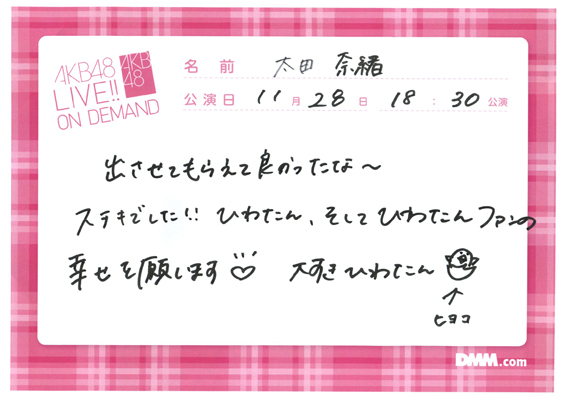 AKB48
LIVE!!
ON DEMAND
AKB
48
名前 太田 奈緒
公演日 11月28日 18:30公演
出させてもらえて良かったな〜
ステキでした!! ひわたん、そしてひわたんファンの
幸せを願います♡ 大すきひわたん
↑
ヒヨコ
DMM.com